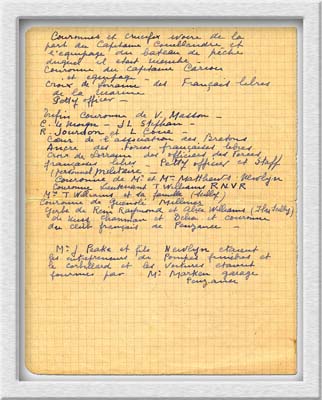 Couronnes et crucifix ivoire de la
part du Capitaine Commandant et
l'equipage du bateau de pêche
duquel il etait membre -
Couronne du Capitaine
et equipage -
Croix de Lorraine des Français libres
de la marine
Petty officer -
Couronne de V. Masson -
J L Stephan -
R. Jourdon et L
de l'association des Bretons
Ancre des Forces françaises libres
Croix de Lorraine des officiers des Forces
françaises libres - Petty officers et Staff
(personnel militaire
Couronne de Mr et Mrs Matthews Newlyn
Couronne Lieutenant T Williams R.N.V.R
Mr T. Williams et sa famille
Couronne de Guénolé
Gerbe de Rémi Raymond et Alice Williams
de
du club français de Penzance -
Mr J Peake et fils Newlyn etaient
les entrepreneurs des Pompes funèbres et
le corbillard et les voitures etaient
fournies par Mr garage
Penzance